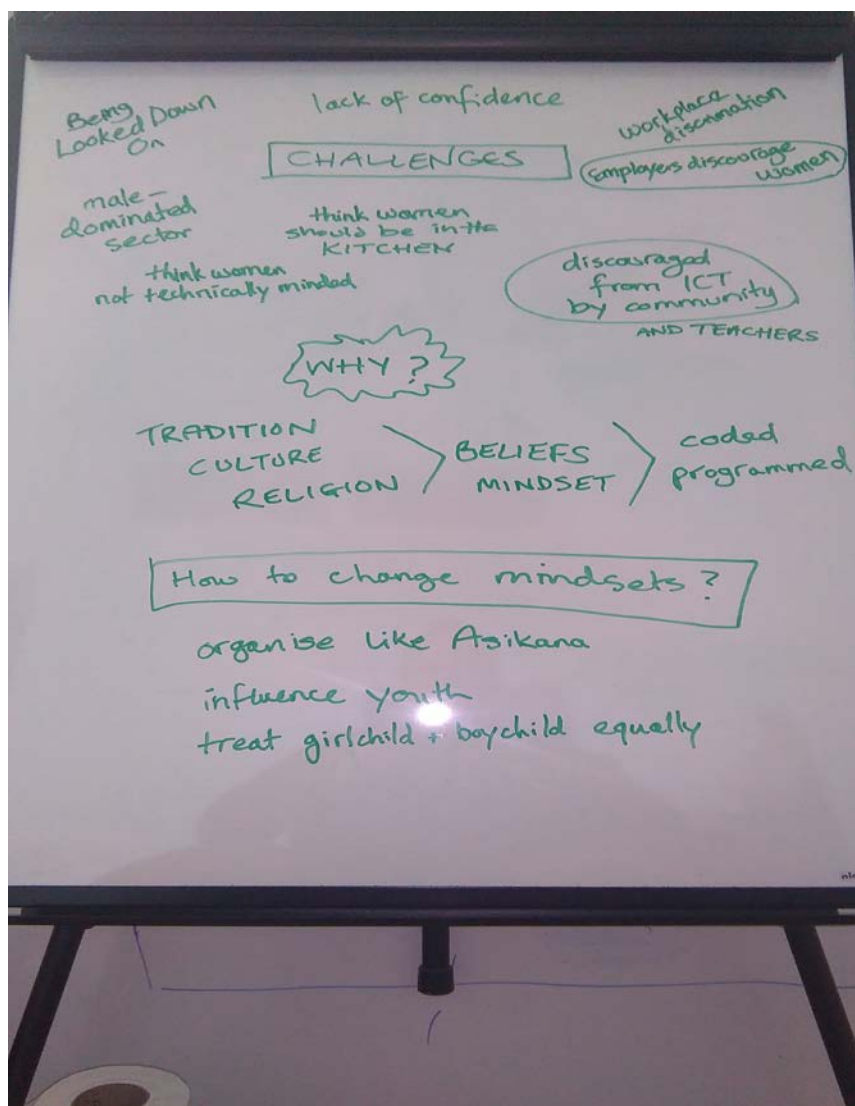 Being
Looked Down
On
lack of confidence
workplace
CHALLENGES
Employers discourage
women
male-
dominated
sector
think women
should be in the
KITCHEN
think women
not technically minded
discouraged
from ICT
by community
AND TEACHERS
WHY?
TRADITION
CULTURE
RELIGION
BELIEFS
MINDSET
coded
programmed
How to change mindsets?
organise like Asikana
influence youth
treat girlchild + boychild equally